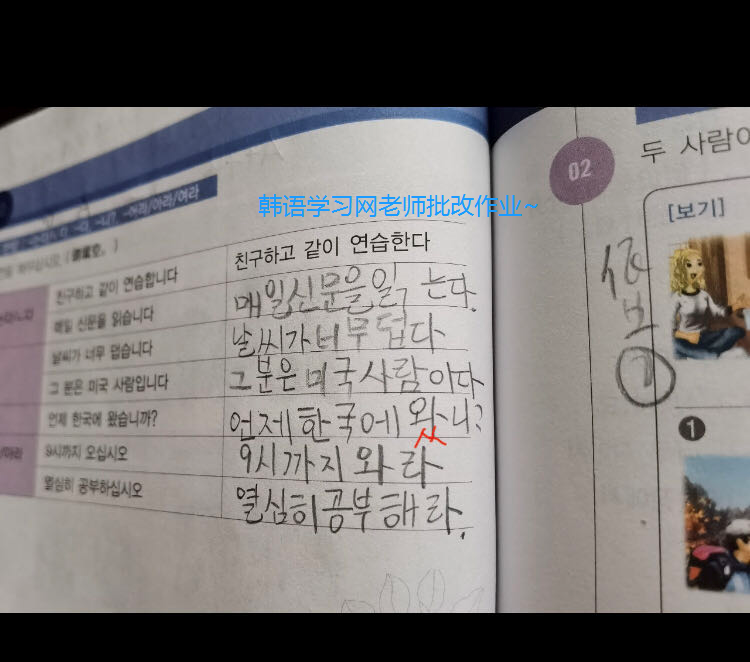 韩语学习网老师批改作业~
-어라/아라/여라
친구하고 같이 연습합니다
친구하고 같이 연습한다
매일 신문을 읽습니다
매일신문을 읽는다.
날씨가 너무 덥습니다
날씨가너무덥다
그 분은 미국 사람입니다
그분은미국사람이다
언제 한국에 왔습니까?
언제한국에 와니?
ㅆ
9시까지 오십시오
9시까지 와라
열심히 공부하십시오
열심히공부해라.
02
두 사람이
[보기]
1